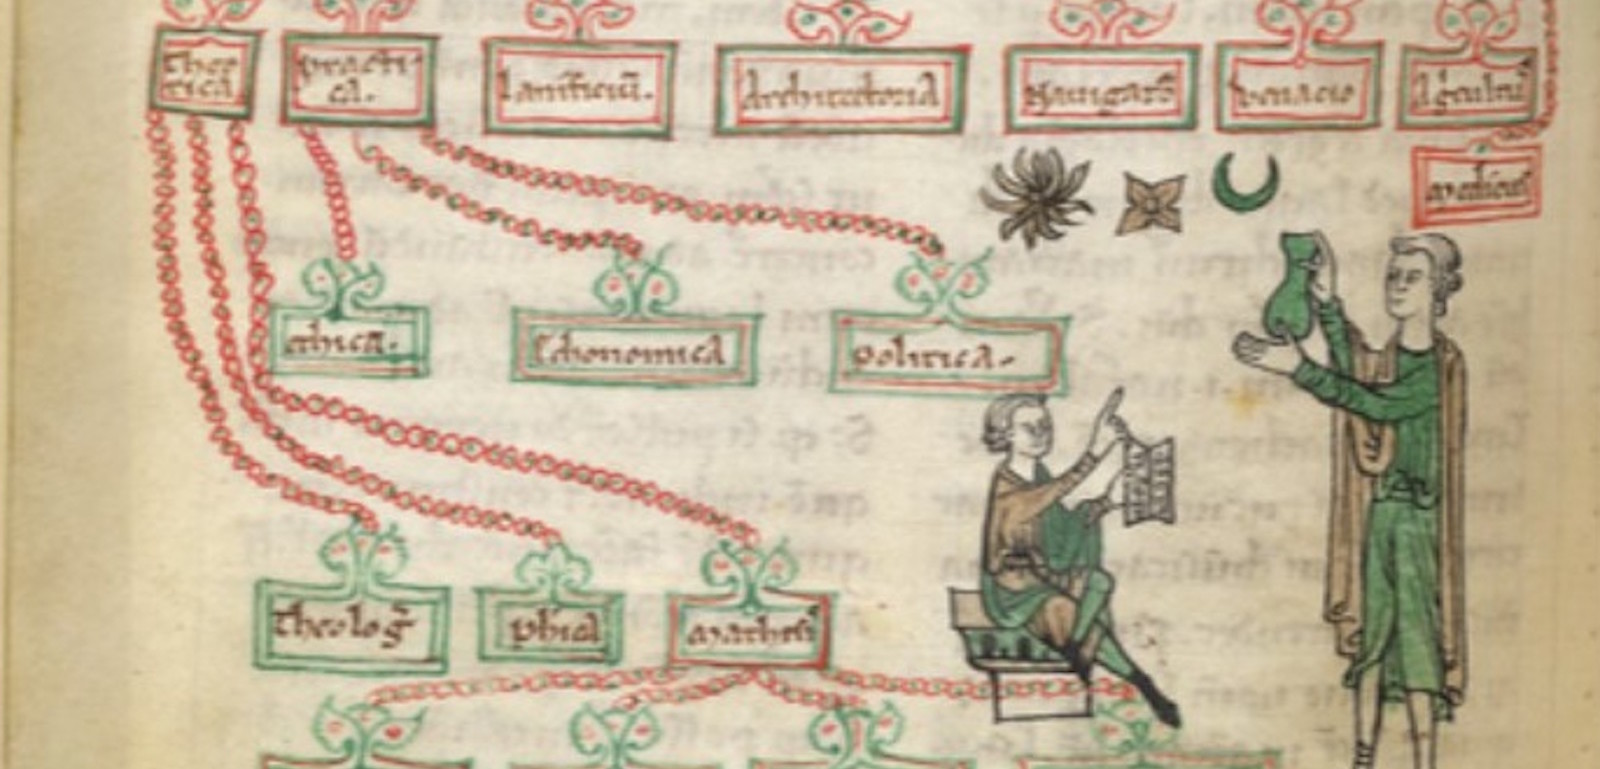 theo
rica
practi
ca.
Lanificiū.
Architectoria
Nauigatō
Venacio
Ag̃cultū
medicin̄
ethica.
Echonomica
politica.
theolog̃
phīa
mathesī